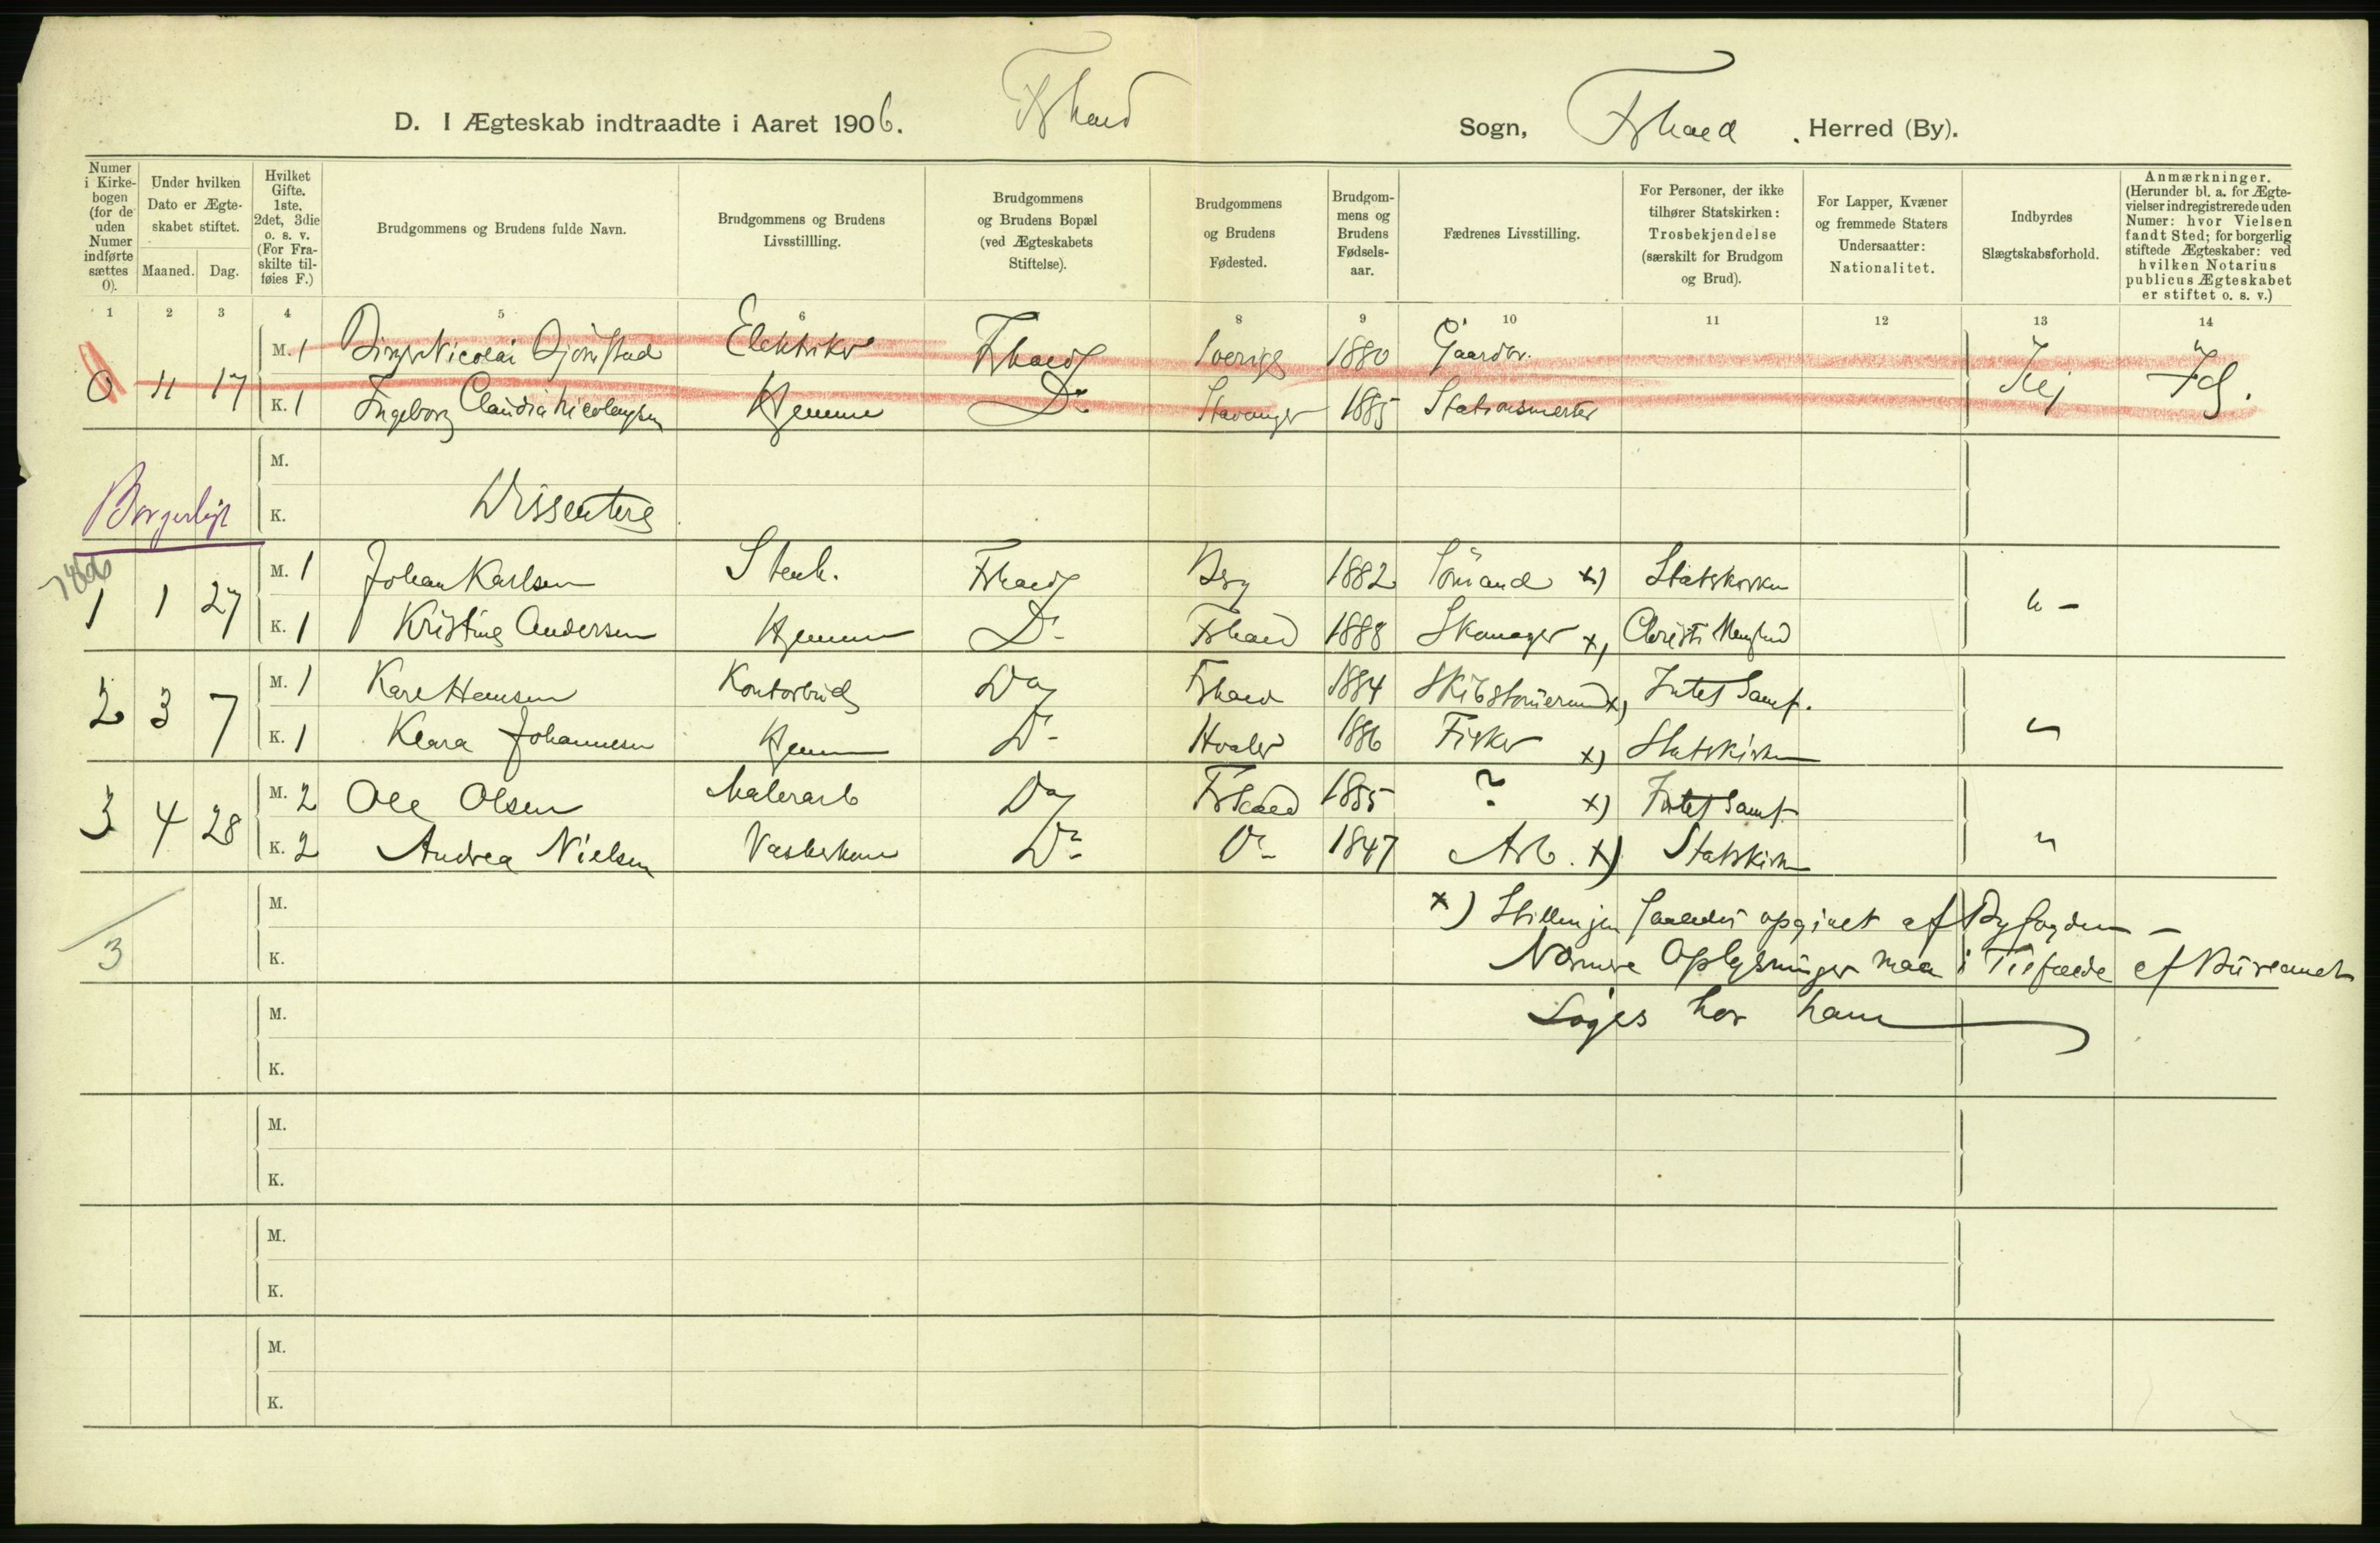 D. I Ægteskab indtraadte i Aaret 1906. Frhald Sogn, Frhald Herred (By).
Numer i Kirke-bogen (for de uden Numer indførte sættes 0).
Under hvilken Dato er Ægte-skabet stiftet.
Maaned. Dag.
Hvilket Gifte. 1ste. 2det, 3die o. s. v. (For Fra-skilte til-føies F.)
Brudgommens og Brudens fulde Navn.
Brudgommens og Brudens Livsstillling.
Brudgommens og Brudens Bopæl (ved Ægteskabets Stiftelse).
Brudgommens og Brudens Fødested.
Brudgom-mens og Brudens Fødsels-aar.
Fædrenes Livsstilling.
For Personer, der ikke tilhører Statskirken: Trosbekjendelse (særskilt for Brudgom og Brud).
For Lapper, Kvæner og fremmede Staters Undersaatter: Nationalitet.
Indbyrdes Slægtskabsforhold.
Anmærkninger. (Herunder bl. a. for Ægte-vielser indregistrerede uden Numer: hvor Vielsen fandt Sted; for borgerlig stiftede Ægteskaber: ved hvilken Notarius publicus Ægteskabet er stiftet o. s. v.)
1 2 3 4 5 6 8 9 10 11 12 13 14
M. 1 Nicolai Elektriker Frhald Sverige 1880 Gaardbr.
0 11 17 Nej
K. 1 Ingeborg Claudia Nicolaysen Hjemme Do Stavanger 1885 Stationsmester
M.
Borgerligt K. Dissentere
M. 1 Johan Karlsen Stenh. Frhald Berg 1882 Sömand x) Statskirken
1 1 27 " -
K. 1 Kristine Andersen Hjemme Do Frhald 1888 Skomager x) Christi Menighed
M. 1 Karl Hansen Kontorbud Do Frhald 1884 Skibstömermd x) Intet Samf.
2 3 7 "
K. 1 Klara Johannesen Hjemme Do Hvaler 1886 Fisker x) Statskirken
M. 2 Ole Olsen Malerarb Do Frhald 1855 ? x) Intet Samf.
3 4 28 "
K. 2 Andrea Nielsen Vaskerkone Do Do 1847 Arb. x) Statskirken
M. x) Stillingen saaledes opgivet af Byfogden -
3 K. Nærmere Oplysninger maa i Tilfælde af Bureauet
M. Söges hos ham
K.
M.
K.
M.
K.
M.
K.